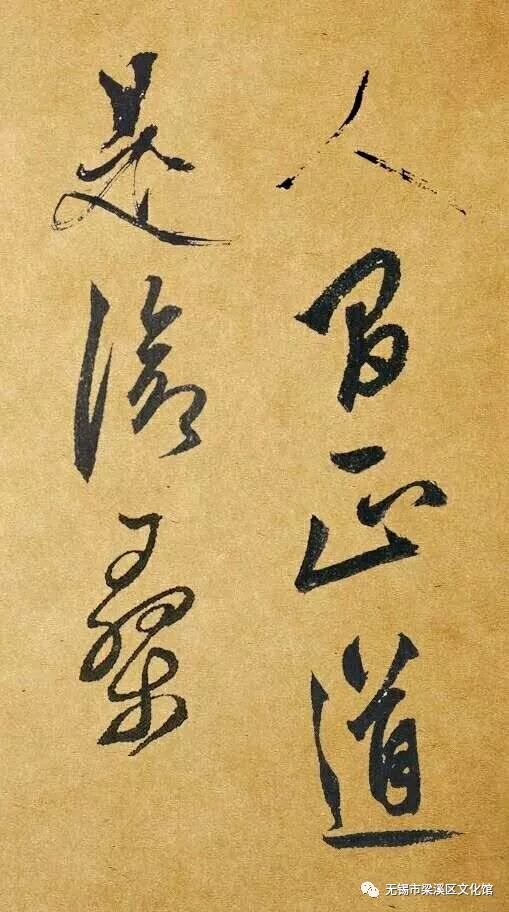 人间正道
是沧桑
无锡市梁溪区文化馆